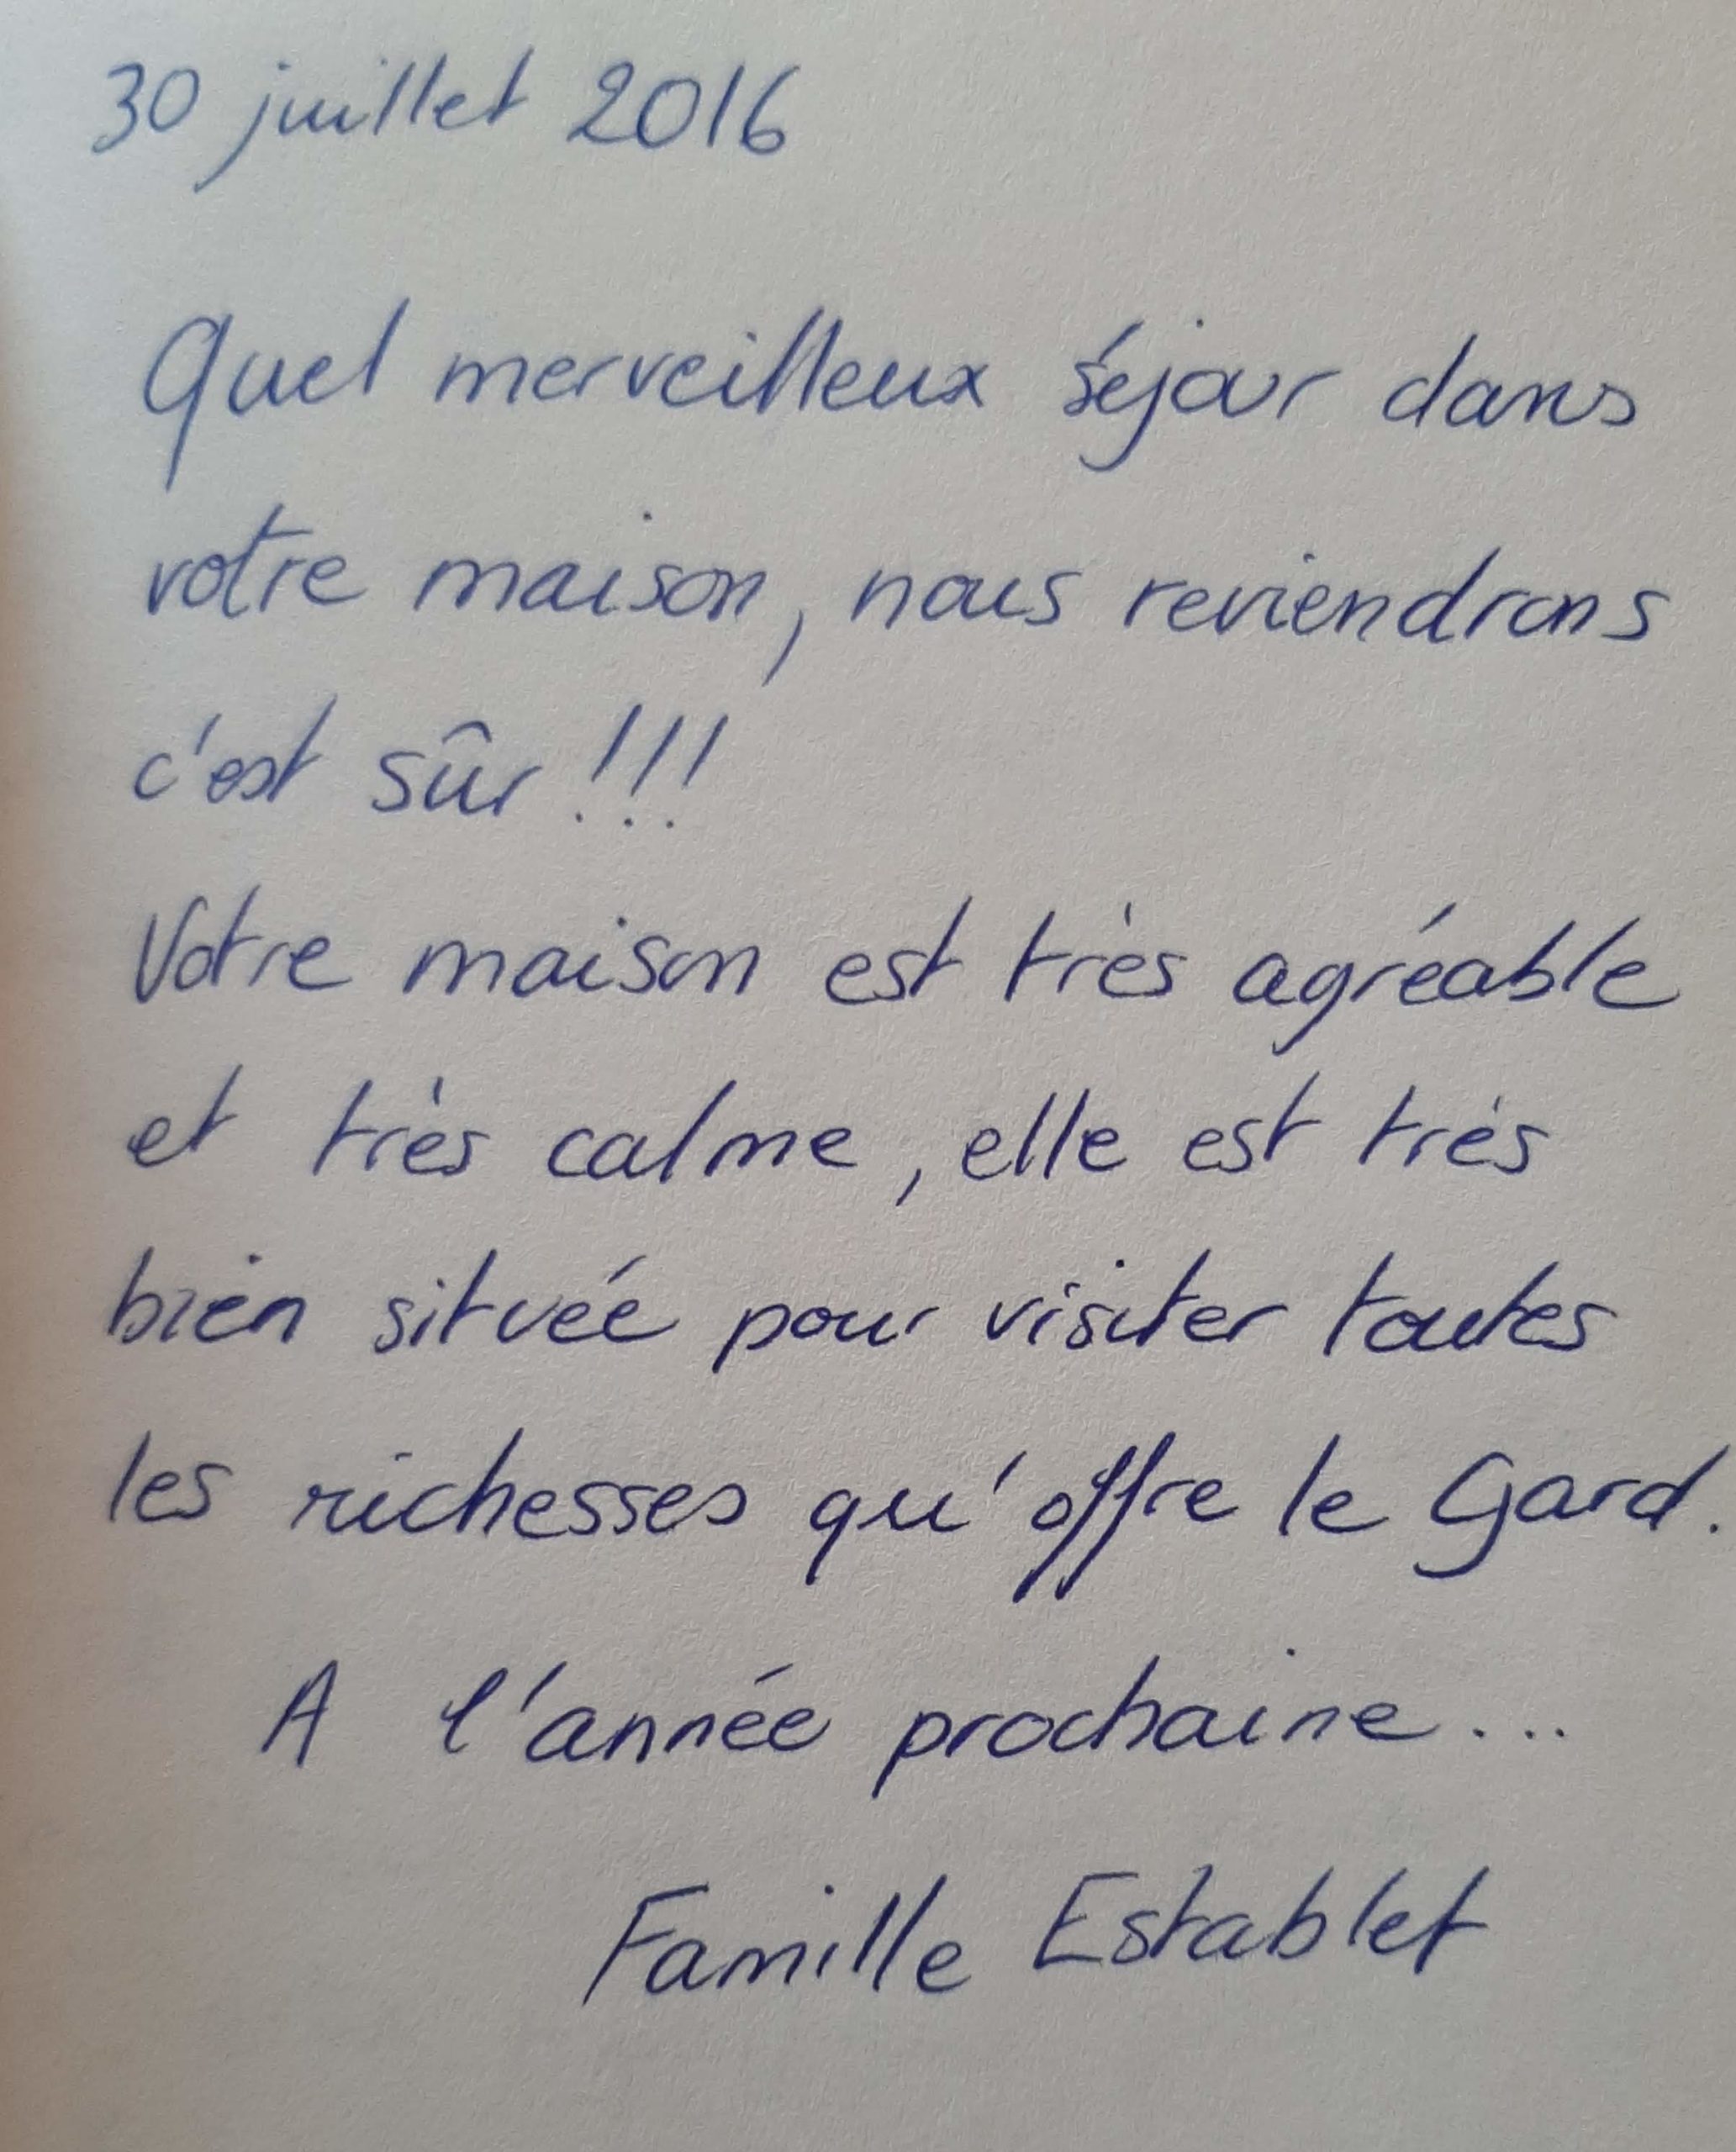 30 juillet 2016
Quel merveilleux séjour dans
votre maison, nous reviendrons
c'est sûr !!!
Votre maison est très agréable
et très calme, elle est très
bien située pour visiter toutes
les richesses qu'offre le Gard.
A l'année prochaine...
Famille Establet